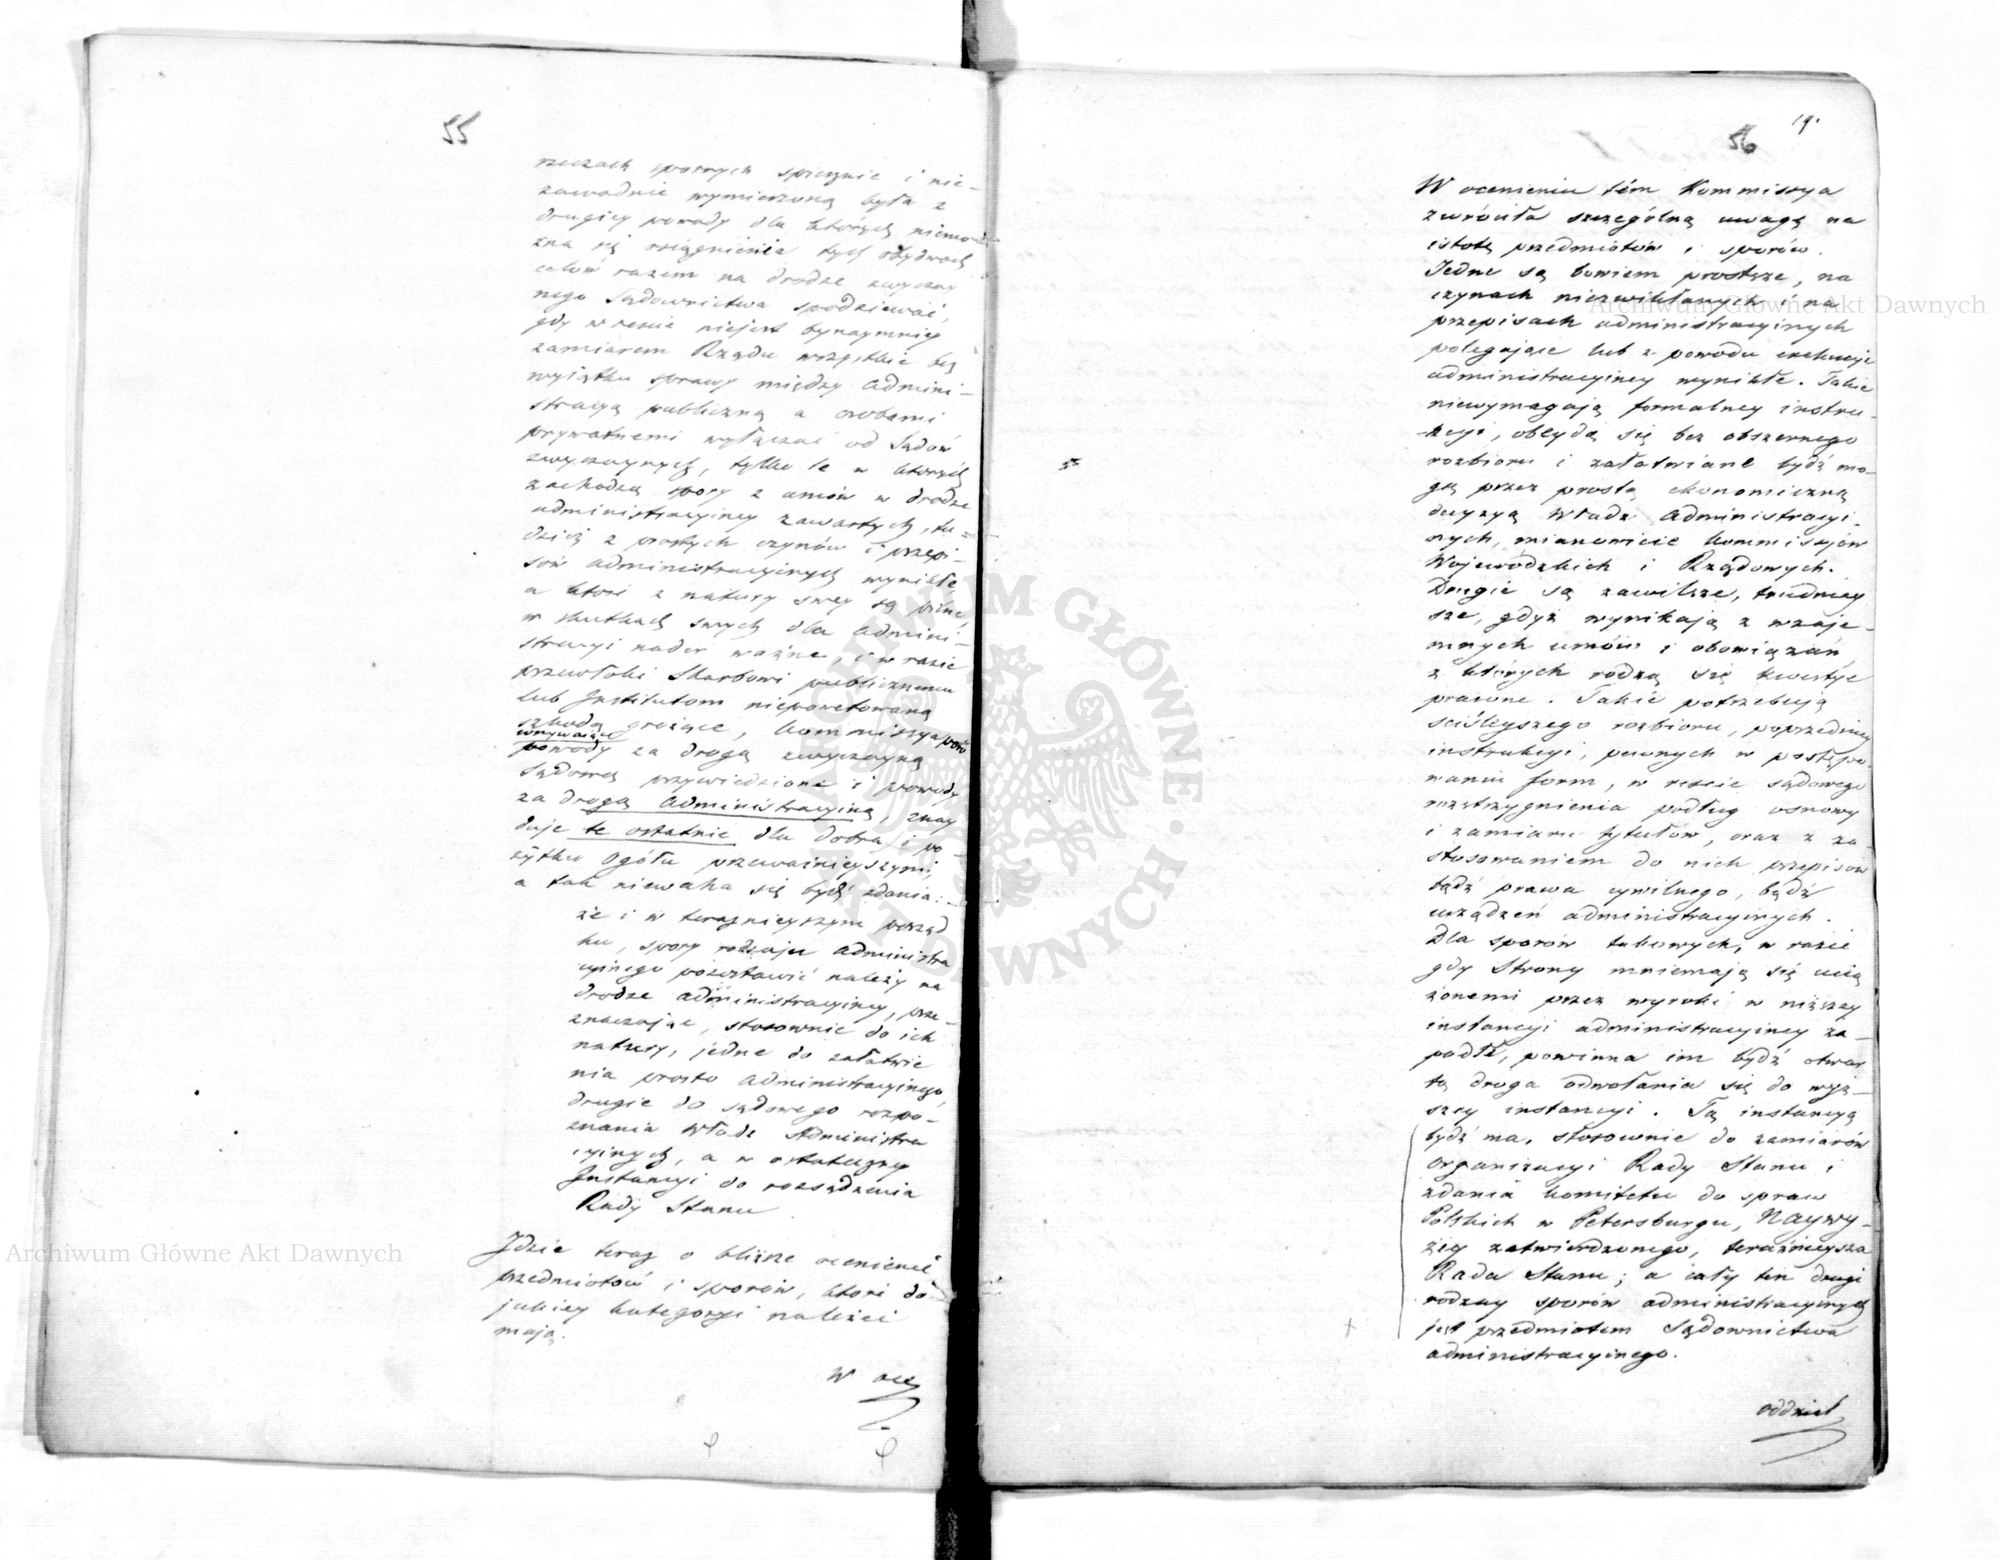 55
rzeczach spornych spiesznie i nie-
zawodnie wymierzoną była z
drugiey powody dla których niemo-
zna się osiągnienia tych obydwóch
celów razem na drodze zwyczay
nego Sądownictwa spodziewać,
gdy wreszcie niejest bynaymniey
zamiarem Rządu wszystkie bez
wyiątku sprawy między admini-
stracyą publiczną a osobami
prywatnemi wyłączać od Sądów
zwyczaynych, tylko te w których
zachodzą spory z umów w drodze
administracyiney zawartych, tu-
dzież z prostych czynów i przepi-
sów administracyinych wynikłe
a które z natury swey są pilne,
w skutkach swych dla admini-
stracyi nader ważne, i w razie
przewłoki Skarbowi publicznemu
lub Instytutom niepowetowaną
szkodą grożące, Kommissya
powody za drogą zwyczayną
Sądową przywiedzione i powody
za drogą administracyiną, znay
duje te ostatnie dla dobra i po-
żytku Ogółu przeważnieyszymi,
a tak niewaha się bydź zdania:
że i w teraznieyszym porząd
ku, spory rodzaju administra
cyinego pozostawić należy na
drodze administracyiney, prze-
znaczając, stosownie do ich
natury, jedne do załatwie
nia prosto administracyinego,
drugie do sądowego rozpo-
znania Władz Administra
cyinych, a w ostateczney
Instancyi do rozsądzenia
Rady Stanu
Idzie teraz o bliższe ocenienie
przedmiotów i sporów, które do
jakiey kategoryi należeć
mają.
W oce
19.
56
W ocenieniu tém Kommissya
zwróciła szczególną uwagę na
istotę przedmiotów i sporów.
Jedne są bowiem prostsze, na
czynach niezwikłanych i na
przepisach administracyinych
polegające lub z powodu exekucyi
administracyiney wynikłe. Takie
niewymagają formalney instru-
kcyi, obeydą się bez obszernego
rozbioru i załatwiane bydź mo-
gą przez prostą ekonomiczną
decyzyą Władz Administracyi-
nych, mianowicie Kommissyów
Wojewódzkich i Rządowych.
Drugie są zawilsze, trudniey
sze, gdyż wynikają z wzaje-
mnych umów i obowiązań,
z których rodzą się kwestye
prawne. Takie potrzebują
ściśleyszego rozbioru, poprzedniey
instrukcyi, pewnych w postępo-
waniu form, w reszcie sądowego
rozstrzygnienia podług osnowy
i zamiaru tytułów, oraz z za-
stosowaniem do nich przepisów
bądź prawa cywilnego, bądź
urządzeń administracyinych.
Dla sporów takowych, w razie
gdy Strony mniemają się ucią
żonemi przez wyroki w niższey
instancyi administracyiney za-
padłe, powinna im bydź otwar
tą droga odwołania się do wyż-
szey instancyi. Tą instancyą
bydź ma, stosownie do zamiarów
organizacyi Rady Stanu i
zdania Komitetu do spraw
Polskich w Petersburgu, Naywy-
żey zatwierdzonego, teraźnieysza
Rada Stanu; a cały ten drugi
rodzay sporów administracyinych
jest przedmiotem Sądownictwa
administracyinego.
oddziel
Archiwum Główne Akt Dawnych
Archiwum Główne Akt Dawnych
ARCHIWUM GŁÓWNE AKT DAWNYCH